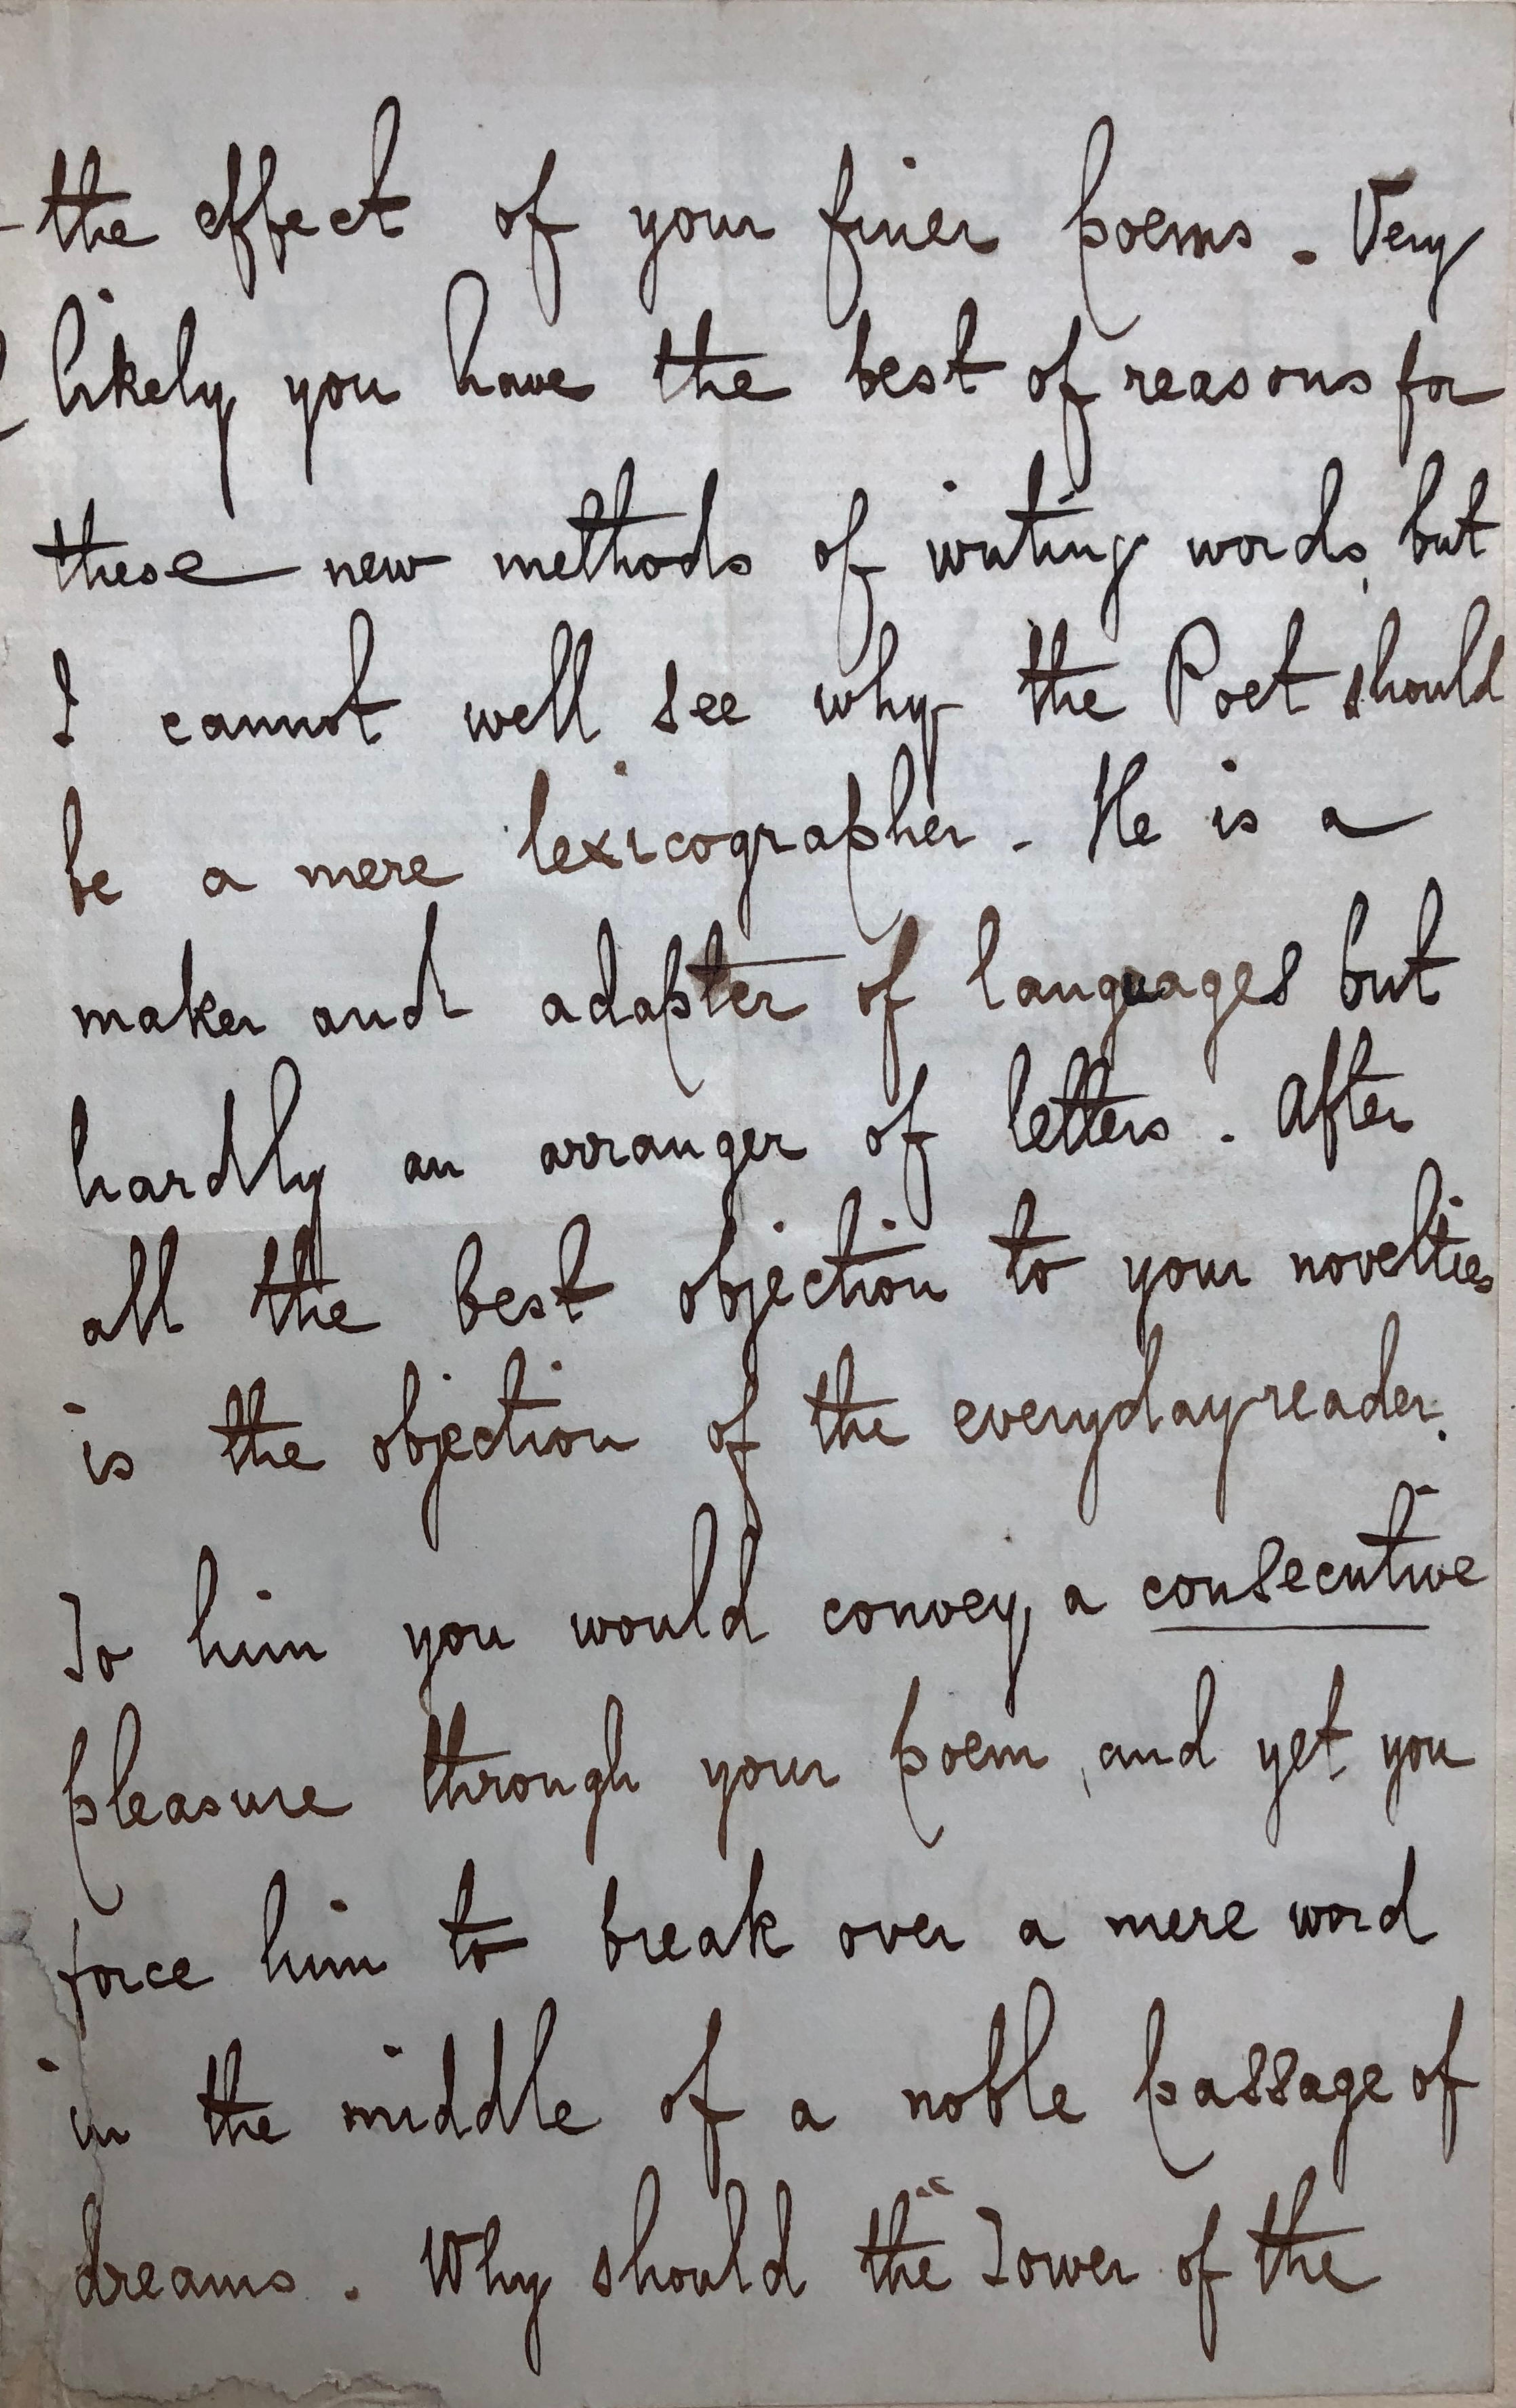 the effect of your finer poems. Very
likely you have the best of reasons for
these new methods of writing words, but
I cannot well see why the Poet should
be a mere lexicographer. He is a
maker and adapter of languages but
hardly an arranger of letters. After
all the best objection to your novelties
is the objection of the everyday reader.
To him you would convey a consecutive
pleasure through your poem, and yet you
force him to break over a mere word
in the middle of a noble passage of
dreams. Why should the "Tower of the